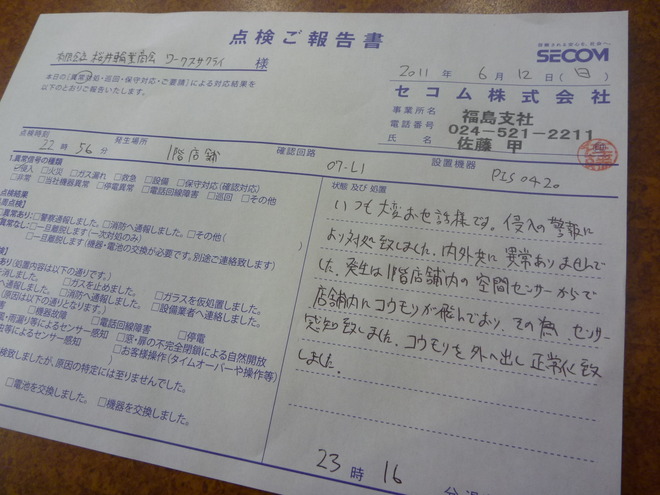 点検ご報告書
信頼される安心を、社会へ。
SECOM
株式会社 桜井輪業商会 ワークスサクライ 様
2011年 6月12日(日)
本日の【異常対処・巡回・保守対応・ご要請】による対応結果を
以下のとおりご報告いたします。
セコム株式会社
事業所名 福島支社
電話番号 024-521-2211
氏名 佐藤 甲 印
点検時刻 22時56分
発生場所 1階店舗
確認回路 07-L1
設置機器 PIS 0420
1.異常信号の種類
☑侵入 □火災 □ガス漏れ □救急 □設備 □保守対応(確認対応)
□非常 □当社機器異常 □停電異常 □電話回線障害 □巡回 □その他
点検結果
異常あり:□警察通報しました。□消防へ通報しました。□その他( )
異常なし:□一旦離脱します(一次対処のみ)
□一旦離脱します(機器・電池の交換が必要です。別途ご連絡致します)
あり(処置内容は以下の通りです。)
□ガスを止めました。 □ガラスを仮処置しました。
通報しました。 □消防へ通報しました。 □設備業者へ連絡しました。
(原因は以下の通りとなります。)
□機器故障 □電話回線障害 □停電
・雨漏り等によるセンサー感知 □窓・扉の不完全閉鎖による自然開放
等によるセンサー感知 □お客様操作(タイムオーバーや操作等)
検致しましたが、原因の特定には至りませんでした。
□電池を交換しました。 □機器を交換しました。
状態及び処置
いつも大変お世話様です。侵入の警報に
より対処致しました。内外共に異常ありませんで
した。発生は1階店舗内の空間センサーからで
店舗内にコウモリが飛んでおり、その為センサー
感知致しました。コウモリを外へ出し正常化致
しました。
23時16分